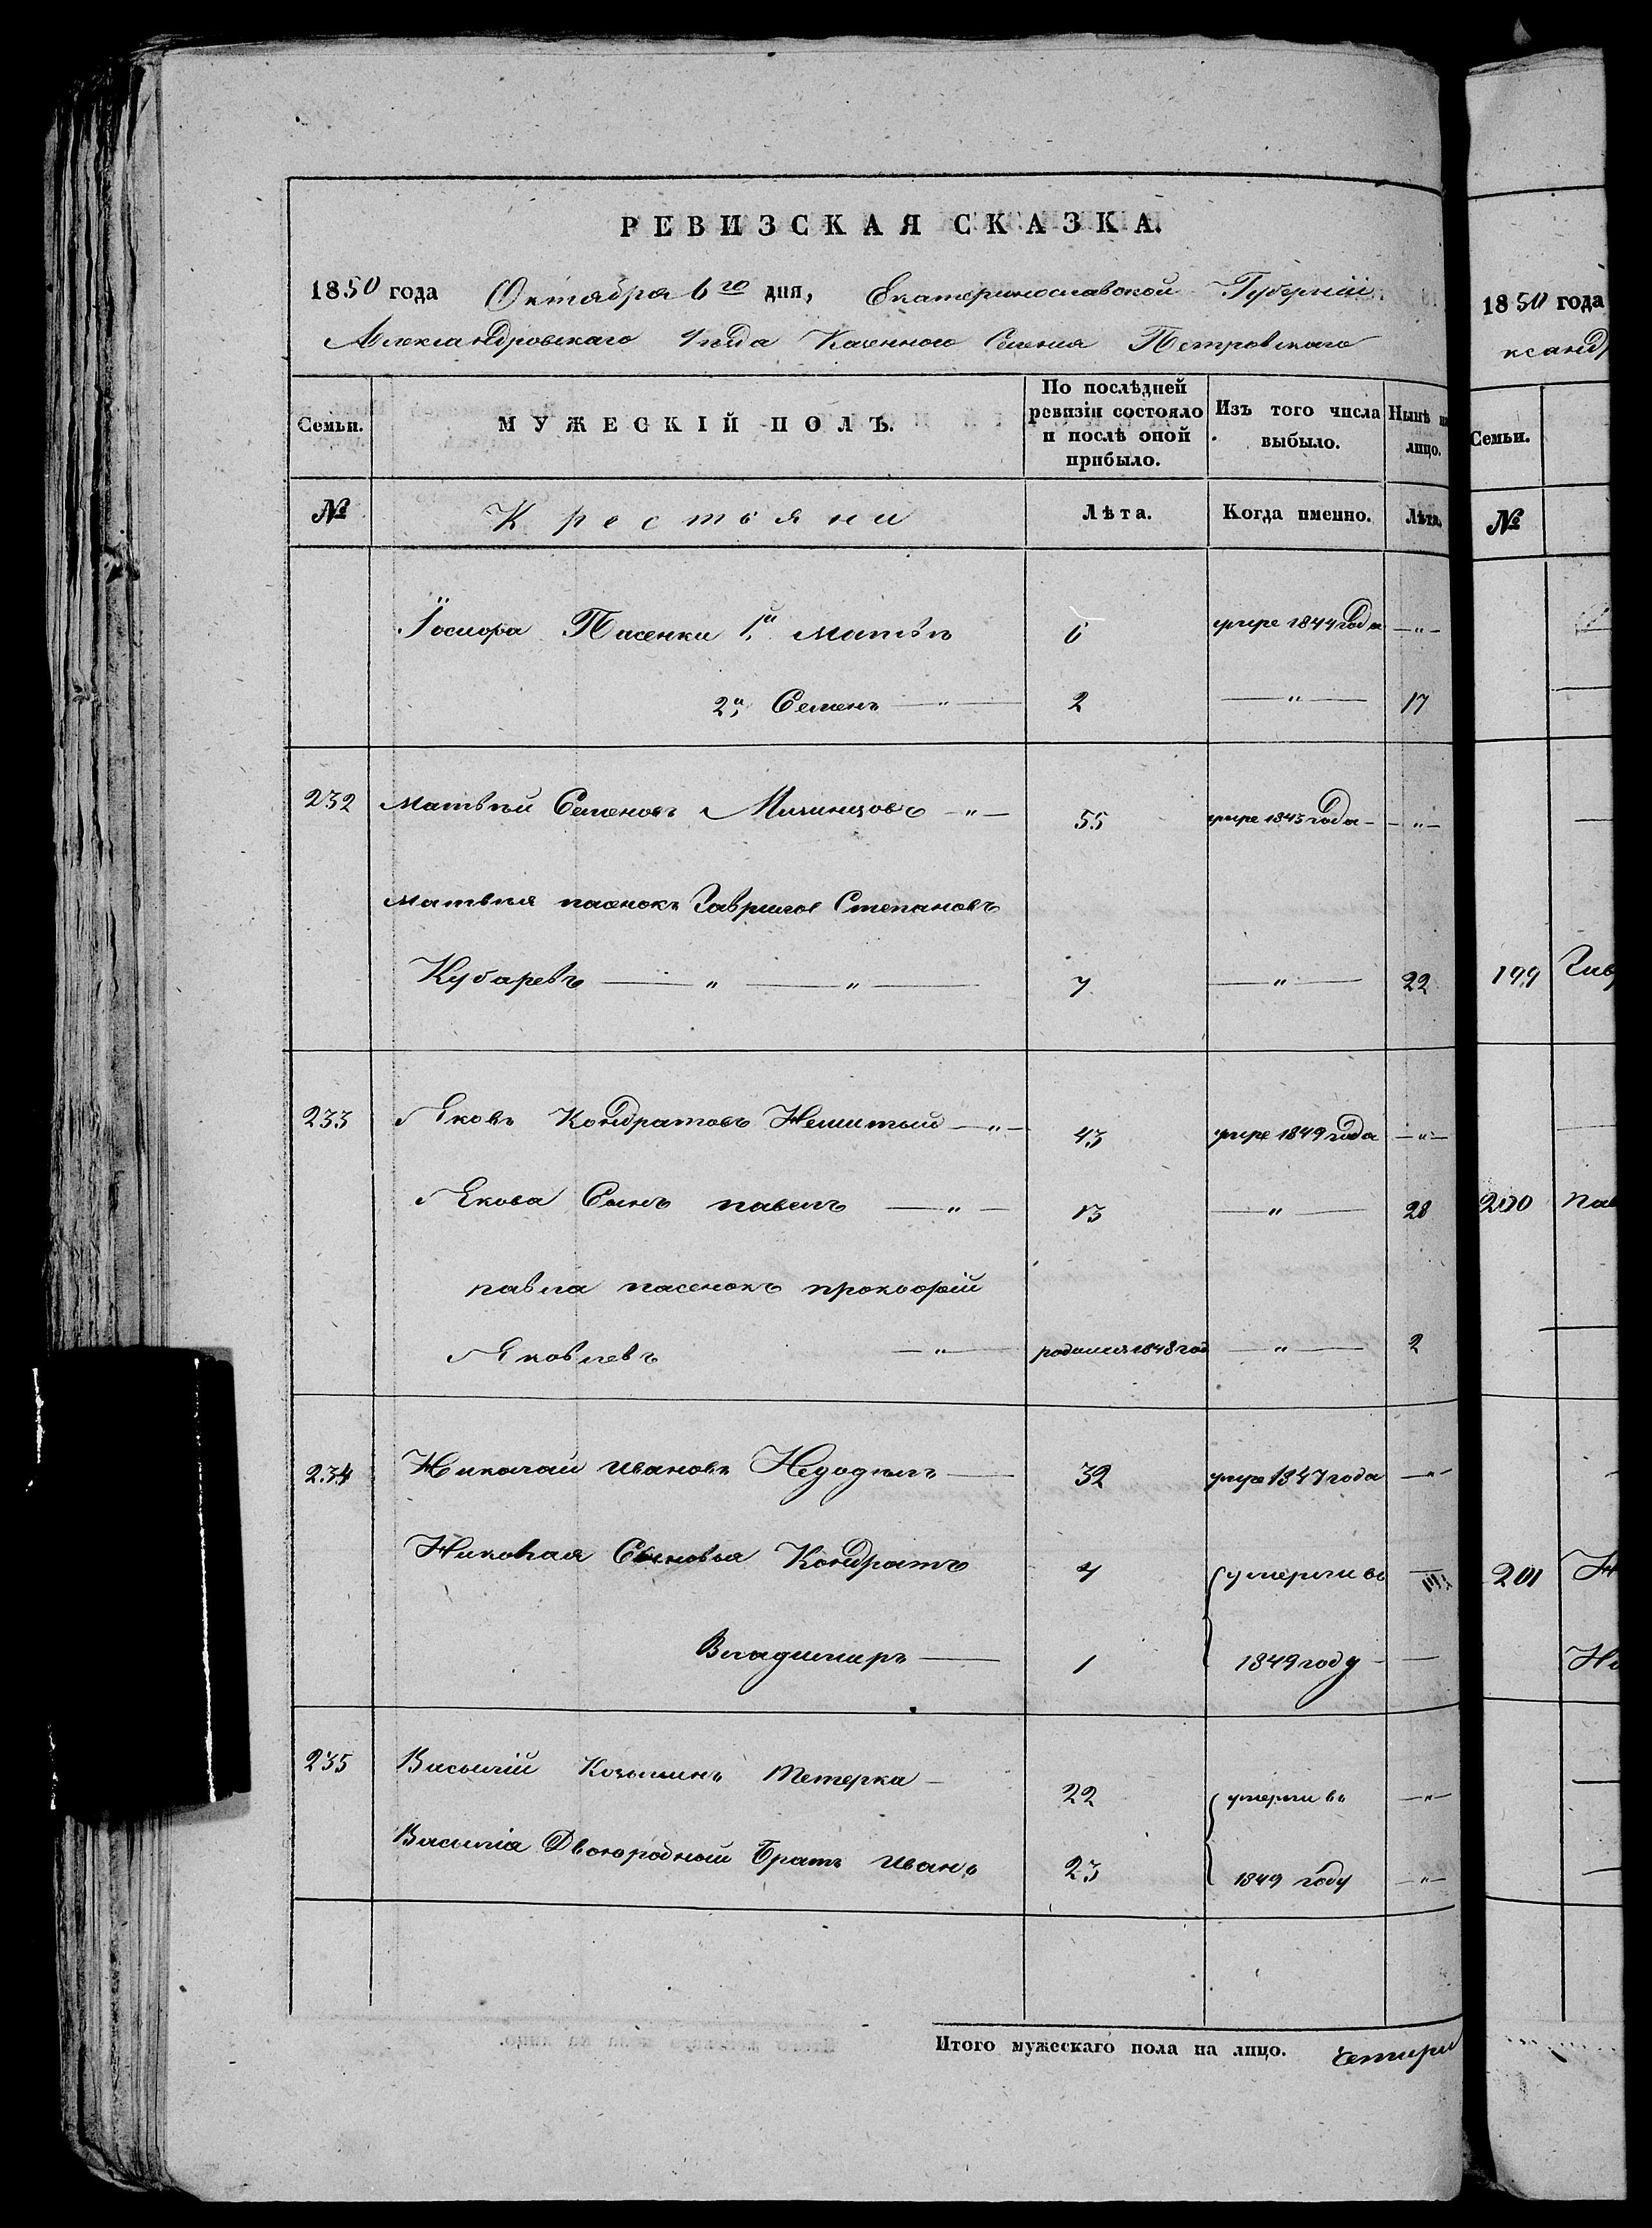 РЕВИЗСКАЯ СКАЗКА.
1850 года Октября 6го дня, Екатеринославской Губерніи
Александровскаго уезда Казенного Селения Петровскаго
Семьи. МУЖЕСКІЙ ПОЛЪ. По послѣдней ревизіи состояло и послѣ оной прибыло. Изъ того числа выбыло. Нынѣ на лицо.
№ Крестьяни Лѣта. Когда именно. Лѣта.
Іосифа Пасенки 1й Матвѣй 6 умре 1844 года —"—
2й Семенъ —"— 2 —"— 17
232 Матвѣй Семеновъ —"— 55 умре 1843 года —"—
Матвѣя пасенокъ Гаврило Степановъ
Кубаревъ —"—"— 7 —"— 22
233 Яковъ Кондратовъ —"— 43 умре 1849 года —"—
Якова Сынъ павелъ —"— 13 —"— 28
павла пасенокъ прокофій
Яковлевъ —"— родился 1848 год —"— 2
234 Николай Ивановъ — 32 умре 1847 года —"—
Николая Сыновья Кондратъ 4 умерли въ —
Владимиръ — 1 1849 году —
235 Василій Козьминъ Тетерка — 22 умерли въ —"—
Василіа Двоюродный Братъ Иванъ 23 1849 году —"—
Итого мужескаго пола на лицо. четири
1850 года
ксанд
Семьи.
№
199 Гав
200 Пав
201 Н
Ни